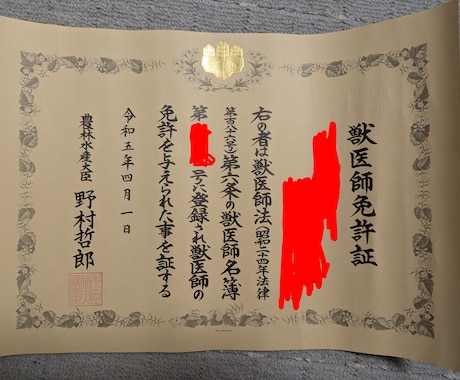 獣医師免許証
右の者は獣医師法(昭和二十四年法律
第百八十六号)第六条の獣医師名簿
第
号に登録され獣医師の
免許を与えられた事を証する
令和五年四月一日
農林水産大臣 野村哲郎